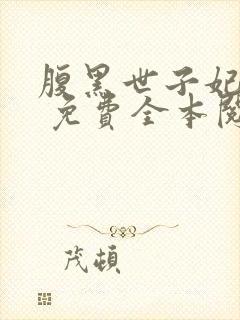 腹黑世子妃
免費全本閱
茂頓